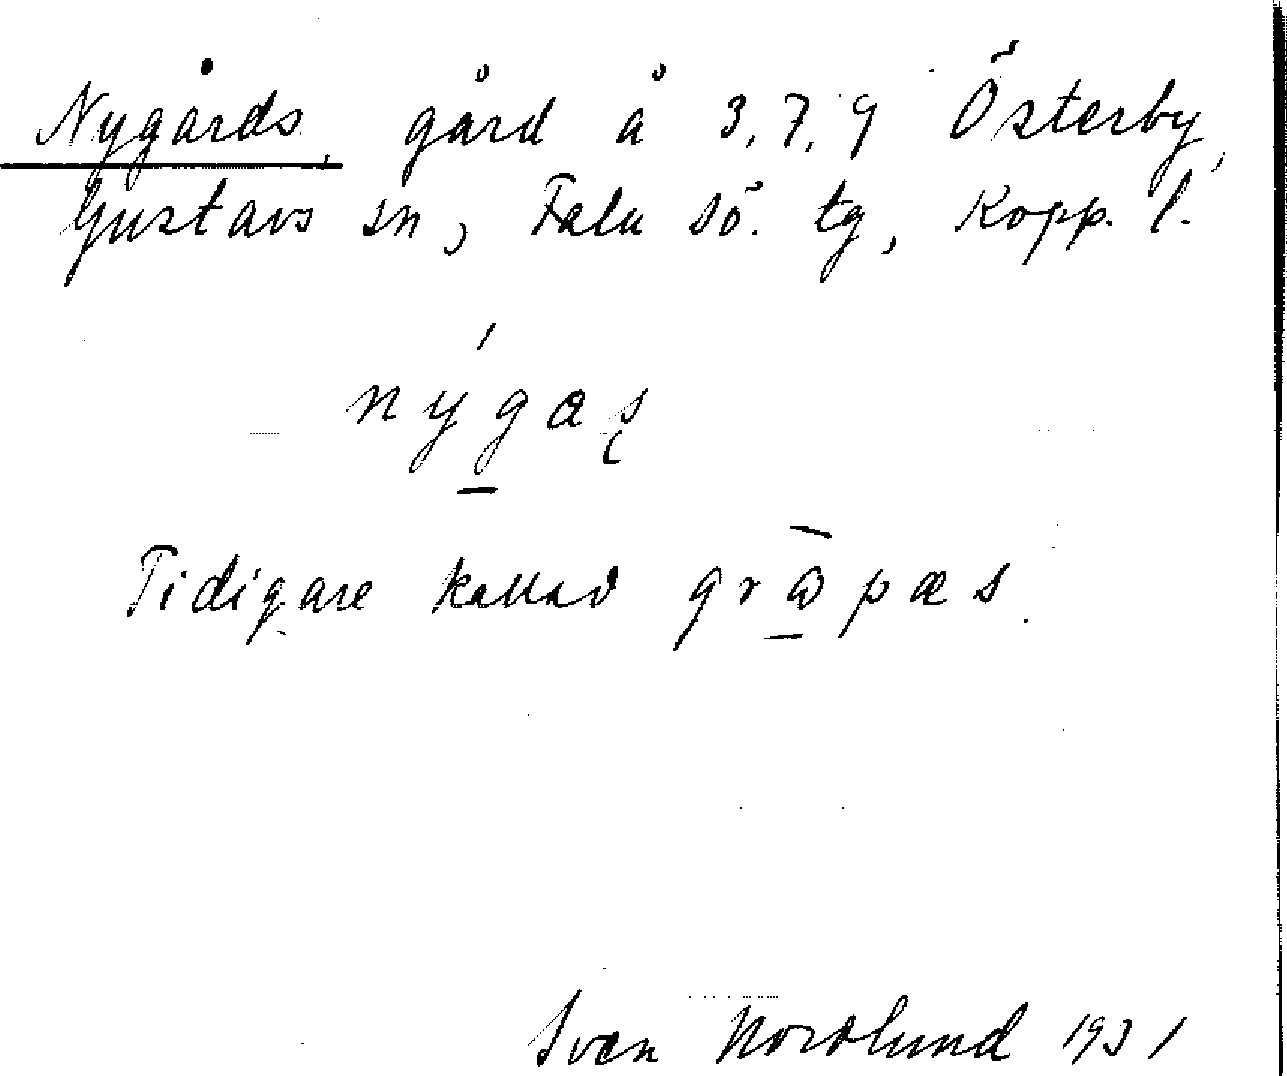 Nygårds, gård å 3, 7, 9 Österby,
Gustavs sn, Falu sö. tg, Kopp. l.
nýgæş
Tidigare kallad gràpæs.
Sven Nordlund 1931